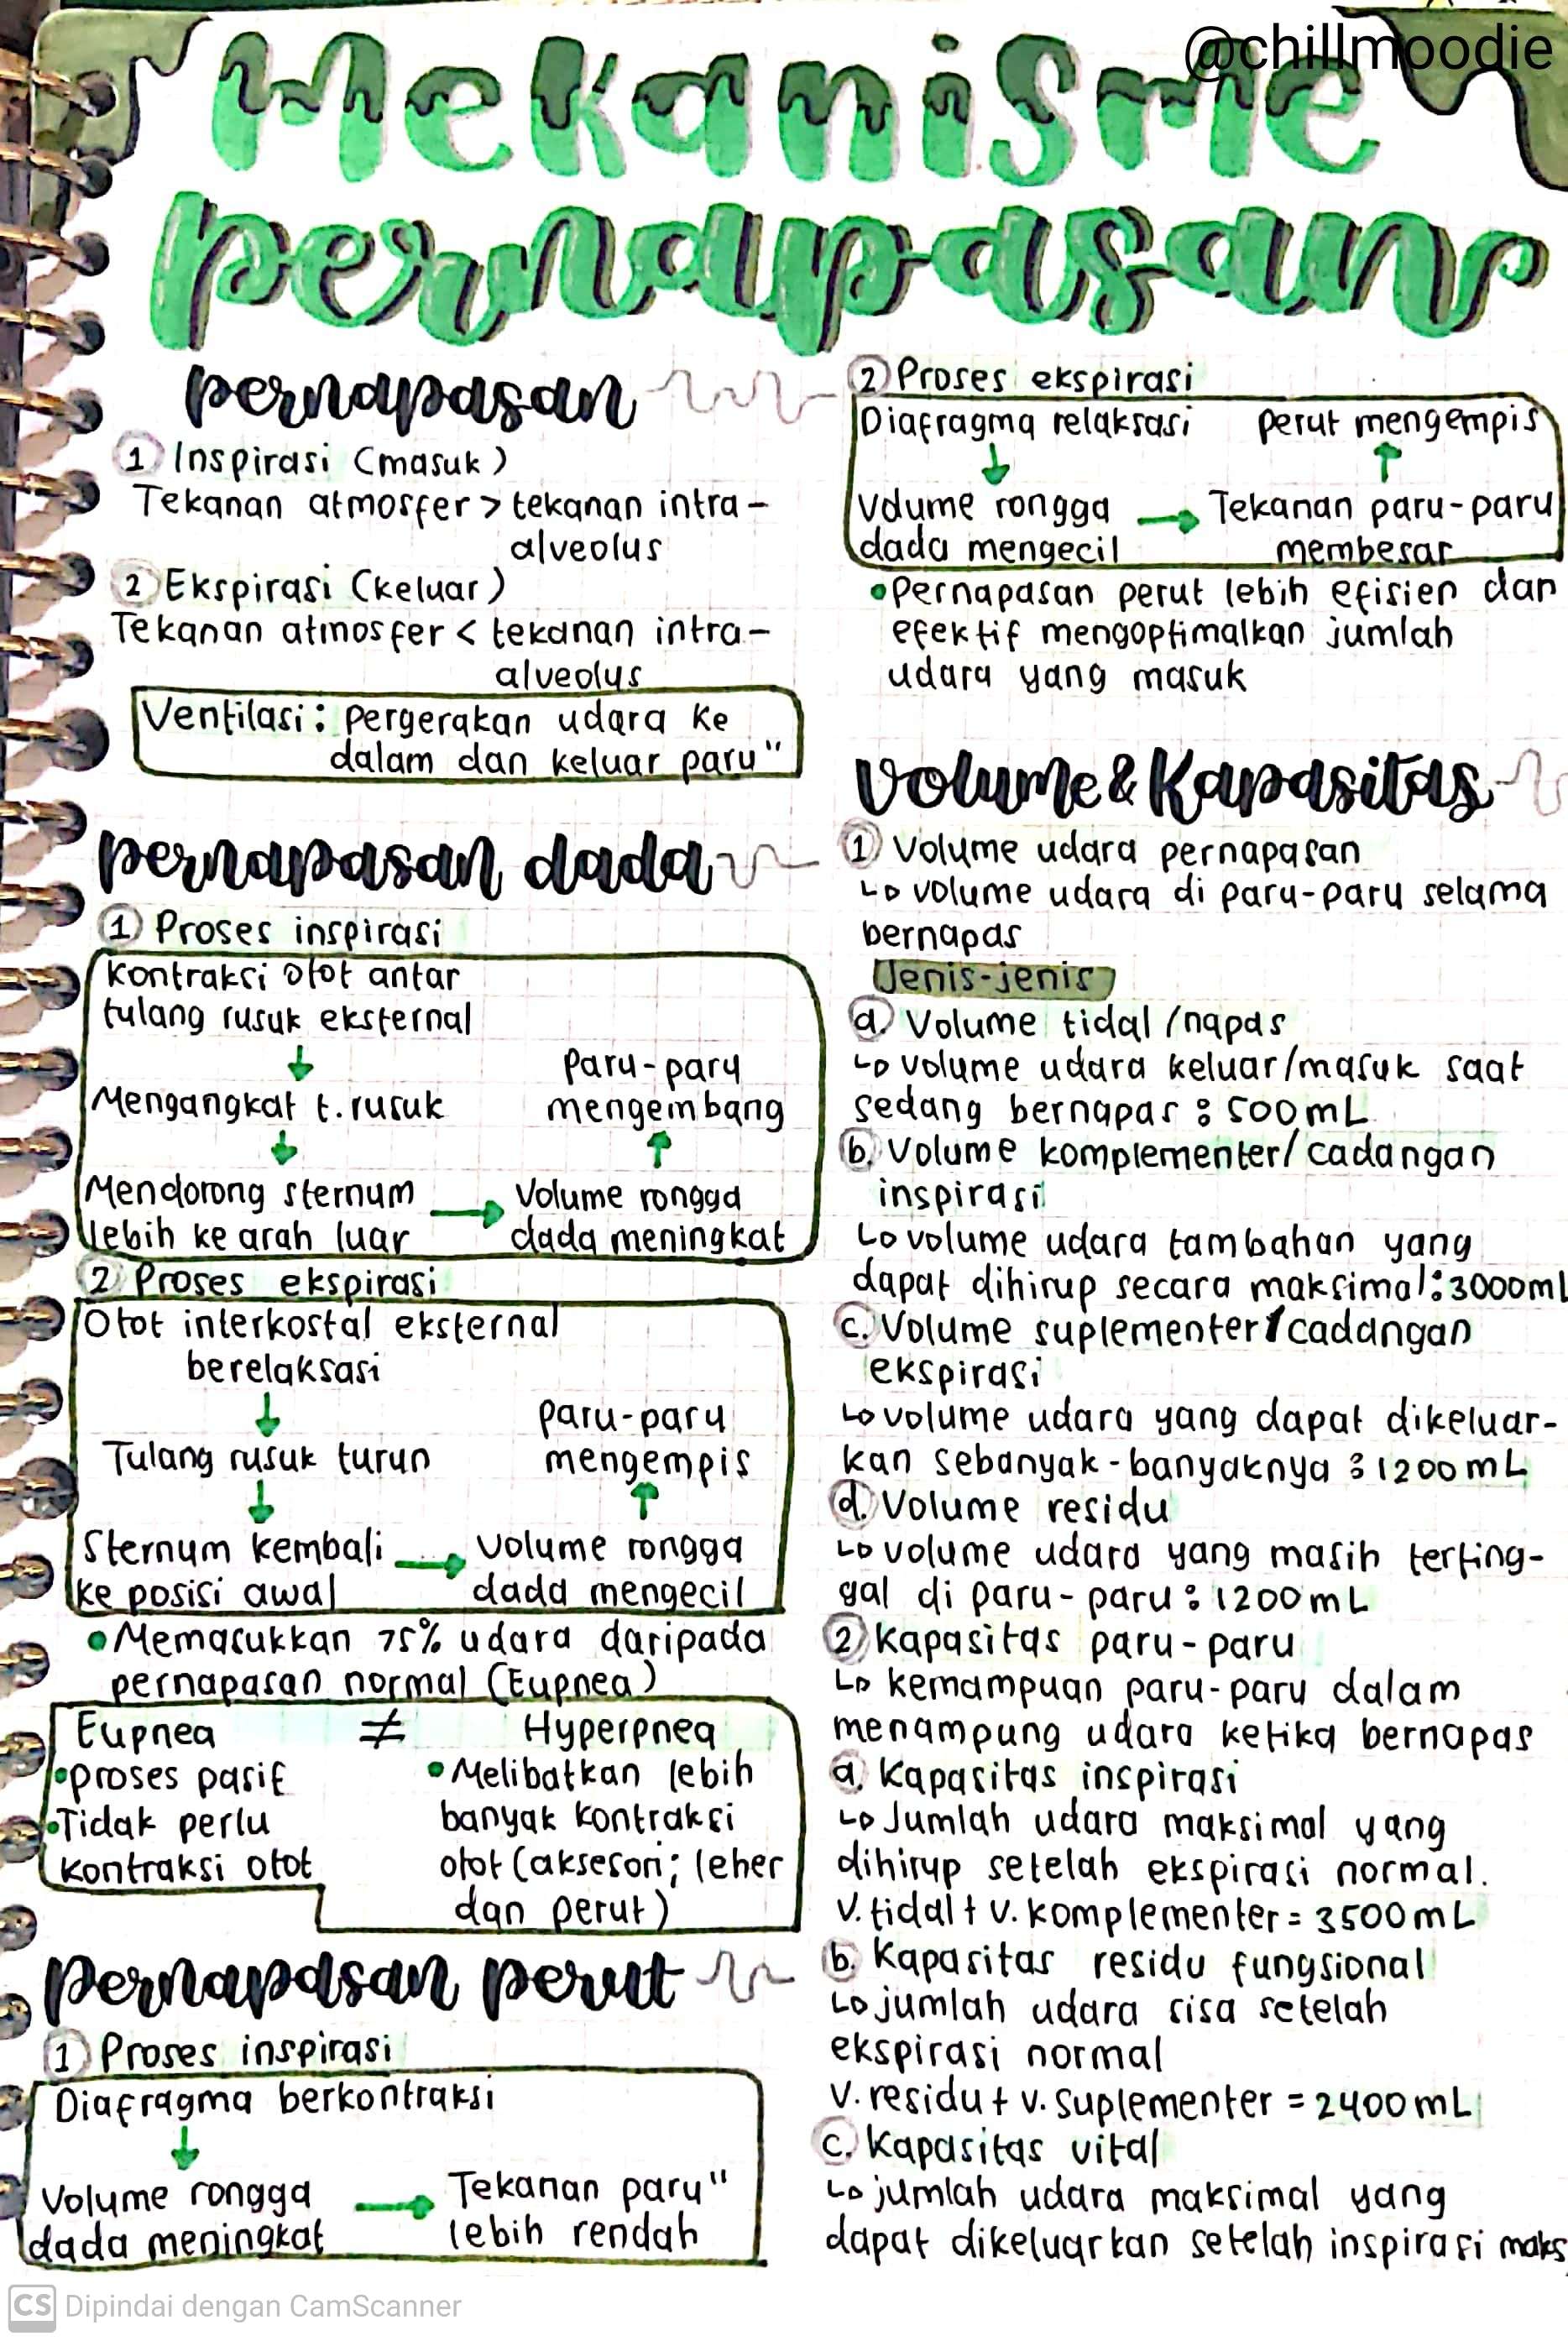 @chillmoodie
Mekanisme
pernapasan
pernapasan
1 Inspirasi (masuk)
Tekanan atmosfer > tekanan intra-
alveolus
2 Ekspirasi (keluar)
Tekanan atmosfer < tekanan intra-
alveolus
Ventilasi : pergerakan udara ke
dalam dan keluar paru"
pernapasan dada
1 Proses inspirasi
kontraksi otot antar
tulang rusuk eksternal
↓
Mengangkat t. rusuk
↓
Mendorong sternum
lebih ke arah luar
→ Volume rongga
dada meningkat
↑
Paru-paru
mengembang
2 Proses ekspirasi
Otot interkostal eksternal
berelaksasi
↓
Tulang rusuk turun
↓
Sternum kembali
ke posisi awal
→ volume rongga
dada mengecil
↑
paru-paru
mengempis
• Memasukkan 75% udara daripada
pernapasan normal (Eupnea)
Eupnea ≠ Hyperpnea
• proses pasif
• Tidak perlu
kontraksi otot
• Melibatkan lebih
banyak kontraksi
otot (aksesori; leher
dan perut)
pernapasan perut
1 Proses inspirasi
Diafragma berkontraksi
↓
Volume rongga
dada meningkat
→ Tekanan paru"
lebih rendah
2 Proses ekspirasi
Diafragma relaksasi
↓
Volume rongga
dada mengecil
→ Tekanan paru-paru
membesar
↑
perut mengempis
• pernapasan perut lebih efisien dan
efektif mengoptimalkan jumlah
udara yang masuk
Volume & Kapasitas
1 Volume udara pernapasan
↳ volume udara di paru-paru selama
bernapas
Jenis-jenis
a. Volume tidal/napas
↳ volume udara keluar/masuk saat
sedang bernapas : 500 mL
b. Volume komplementer/cadangan
inspirasi
↳ volume udara tambahan yang
dapat dihirup secara maksimal : 3000 mL
c. Volume suplementer/cadangan
ekspirasi
↳ volume udara yang dapat dikeluar-
kan sebanyak-banyaknya : 1200 mL
d. Volume residu
↳ volume udara yang masih terting-
gal di paru-paru : 1200 mL
2 Kapasitas paru-paru
↳ kemampuan paru-paru dalam
menampung udara ketika bernapas
a. Kapasitas inspirasi
↳ Jumlah udara maksimal yang
dihirup setelah ekspirasi normal.
V. tidal + V. komplementer = 3500 mL
b. Kapasitas residu fungsional
↳ jumlah udara sisa setelah
ekspirasi normal
V. residu + V. suplementer = 2400 mL
c. Kapasitas vital
↳ jumlah udara maksimal yang
dapat dikeluarkan setelah inspirasi maks
CS Dipindai dengan CamScanner